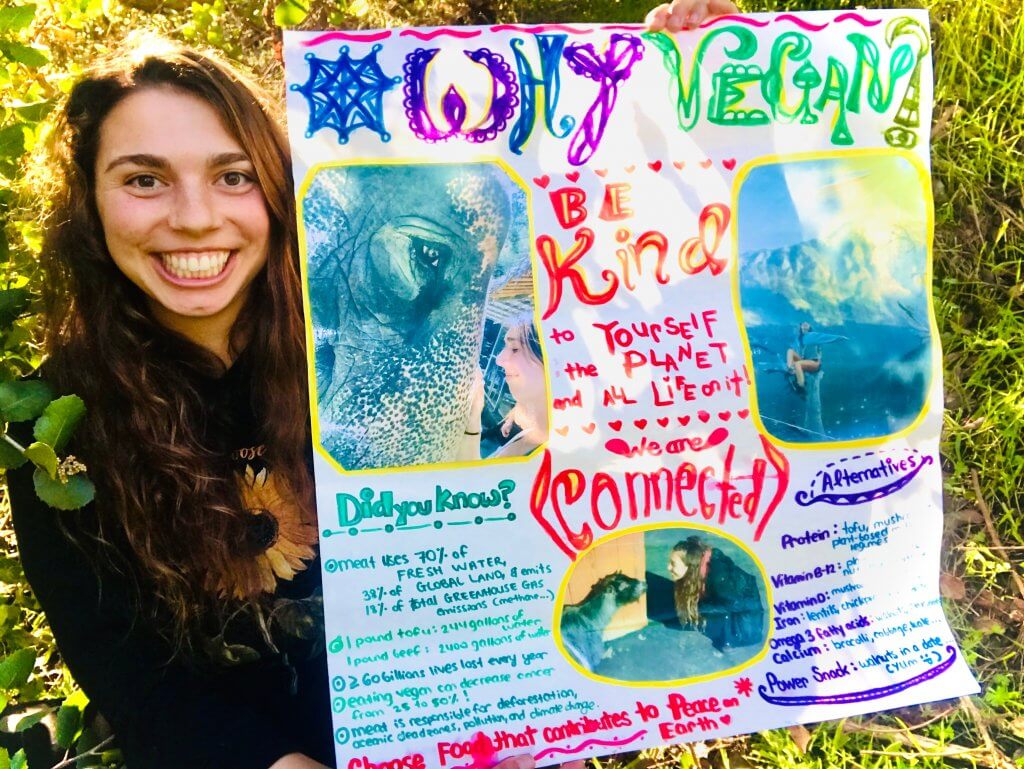 WHY VEGAN!
BE
Kind
to YOURSELF
the PLANET
and ALL LIFE on it!
We are
(Connected)
Did you know?
meat uses 70% of
FRESH WATER,
38% of GLOBAL LAND, & emits
18% of total GREENHOUSE GAS
emissions (methane...)
1 pound tofu: 244 gallons of
water
1 pound beef: 2400 gallons of water
≥ 60 billions lives lost every year
eating vegan can decrease cancer
from 25 to 50%!
meat is responsible for deforestation,
oceanic dead zones, pollution, and climate change.
Alternatives
Protein: tofu,
plant-based
legumes
Vitamin B-12:
Vitamin D:
Iron: lentils
Omega 3 fatty acids:
Calcium: brocolli,
Power Snack: walnuts in a date
(YUM
Choose Food that contributes to Peace on
Earth